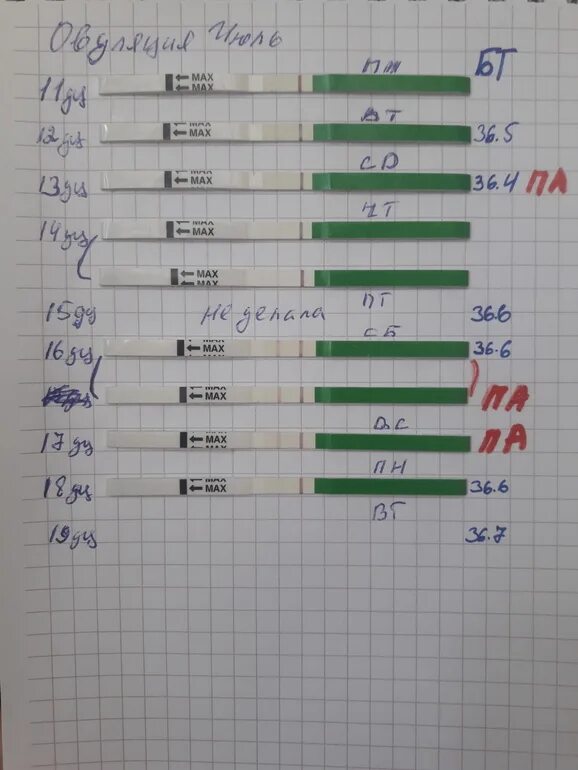 Овуляция Июль
ПН БТ
11дц MAX MAX
ВТ
12дц MAX MAX 36.5
СР
13дц MAX MAX 36.4 ПА
ЧТ
14дц MAX MAX
MAX MAX
ПТ
15дц не делала 36.6
СБ
16дц MAX MAX 36.6
MAX MAX ПА
ВС
17дц MAX MAX ПА
ПН
18дц MAX MAX 36.6
ВТ
19дц 36.7